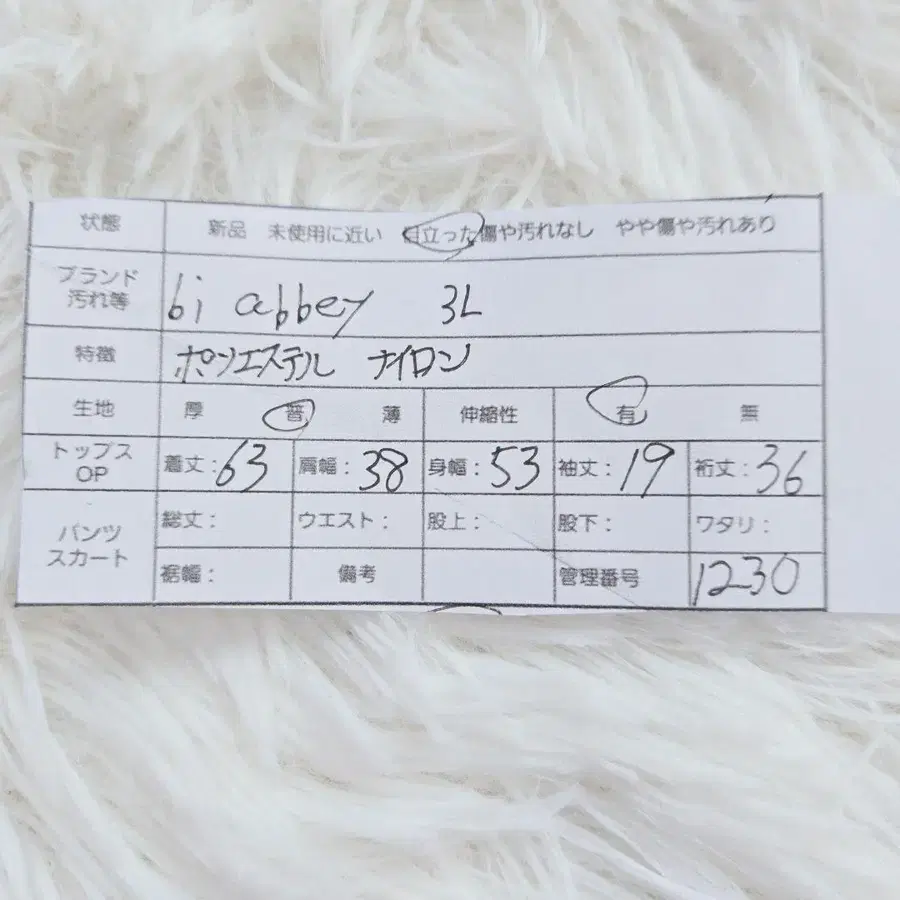 状態 新品 未使用に近い 目立った傷や汚れなし やや傷や汚れあり
ブランド
汚れ等 bi abbey 3L
特徴 ポリエステル ナイロン
生地 厚 普 薄 伸縮性 有 無
トップス
OP 着丈:63 肩幅:38 身幅:53 袖丈:19 裄丈:36
パンツ
スカート 総丈: ウエスト: 股上: 股下: ワタリ:
裾幅: 備考 管理番号 1230